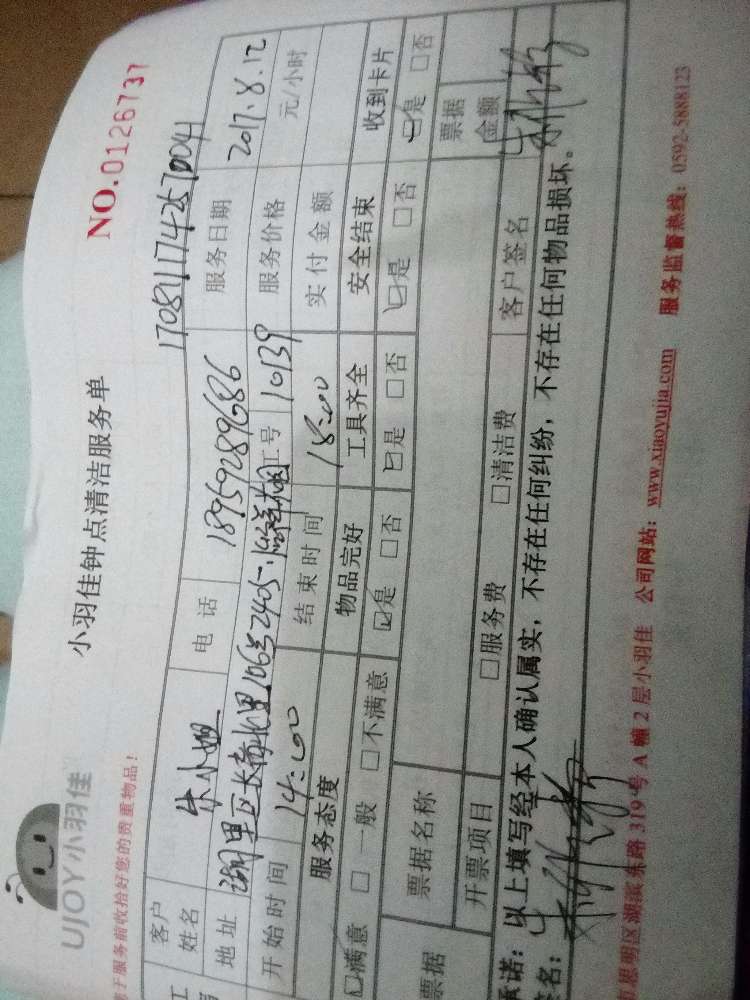 UJOY小羽佳
小羽佳钟点清洁服务单
NO.0126737
于服务前收拾好您的贵重物品!
1708111742570041
客户姓名 小姐 电话 18959289686 服务日期 2017.8.12
地址 湖里区 106号2405 工号 10139 服务价格 元/小时
开始时间 14:00 结束时间 18:00 实付金额
服务态度 物品完好 工具齐全 安全结束 收到卡片
☑满意 □一般 □不满意 ☑是 □否 ☑是 □否 ☑是 □否 ☑是 □否
票据 票据名称 票据金额
开票项目 □服务费 □清洁费 客户签名
承诺:以上填写经本人确认属实,不存在任何纠纷,不存在任何物品损坏。
名:
思明区湖滨东路319号A幢2层小羽佳 公司网站:www.xiaoyujia.com 服务监督热线:0592-5888123